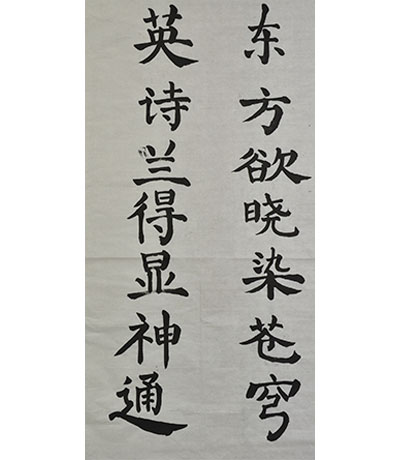 东方欲晓染苍穹
英诗兰得显神通